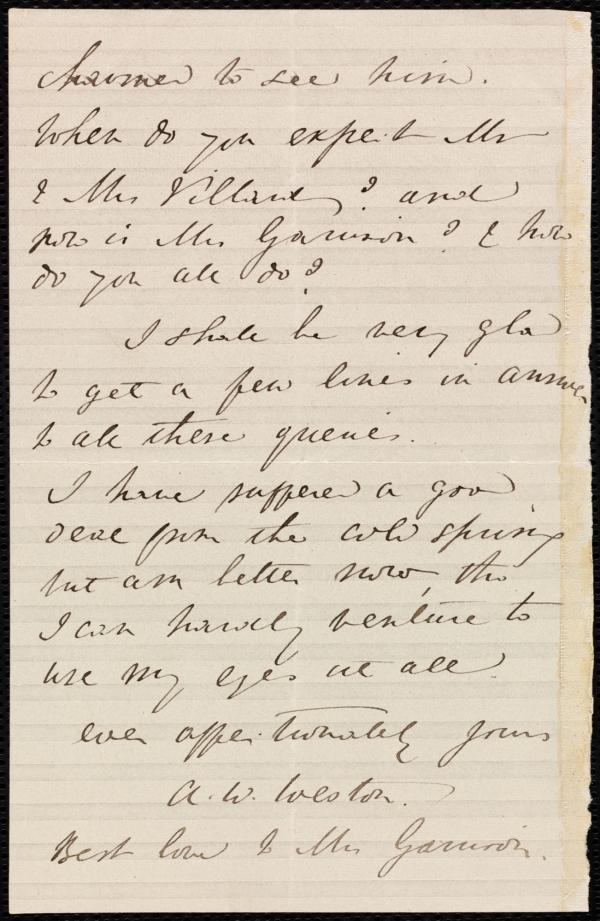 charmed to see him.
When do you expect Mr
& Mrs Villard? and
how is Mrs Garrison? & how
do you all do?
I shall be very glad
to get a few lines in answer
to all these queries.
I have suffered a good
deal from the cold spring
but am better now, tho
I can hardly venture to
use my eyes at all.
ever affectionately yours
A. W. Weston.
Best love to Mrs Garrison.